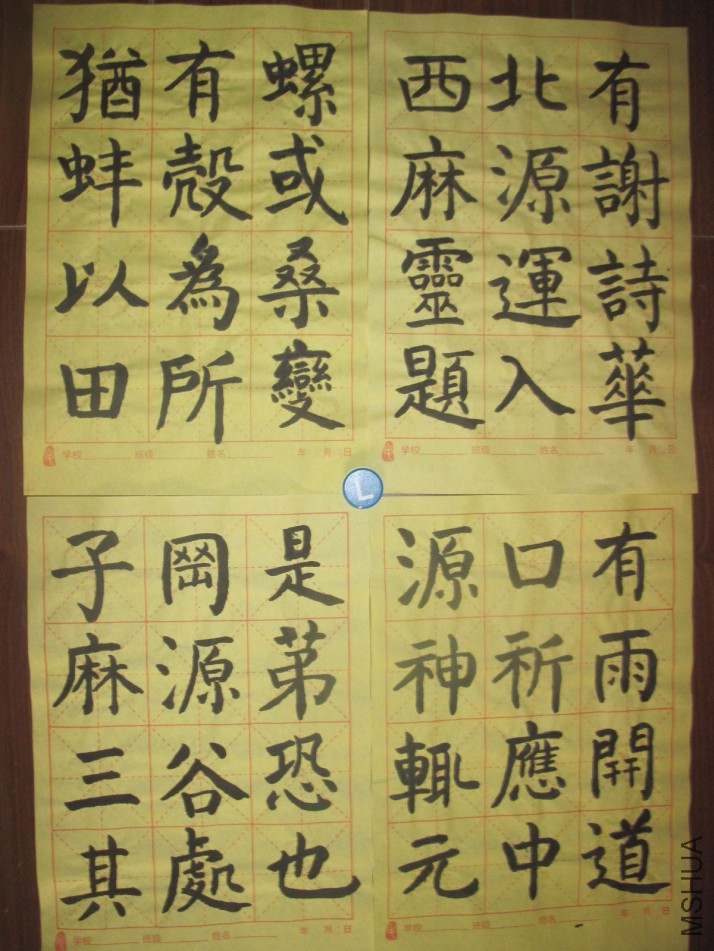 猶有螺
蚌殼或
以為桑
田所變
学校 班级 姓名 年 月 日
西北有
麻源謝
靈運詩
題入華
学校 班级 姓名 年 月 日
L
子岡是
麻源苐
三谷恐
其處也
学校 班级 姓名 年 月 日
源口有
神祈雨
輒應開
元中道
学校 班级 姓名 年 月 日
MSHUA